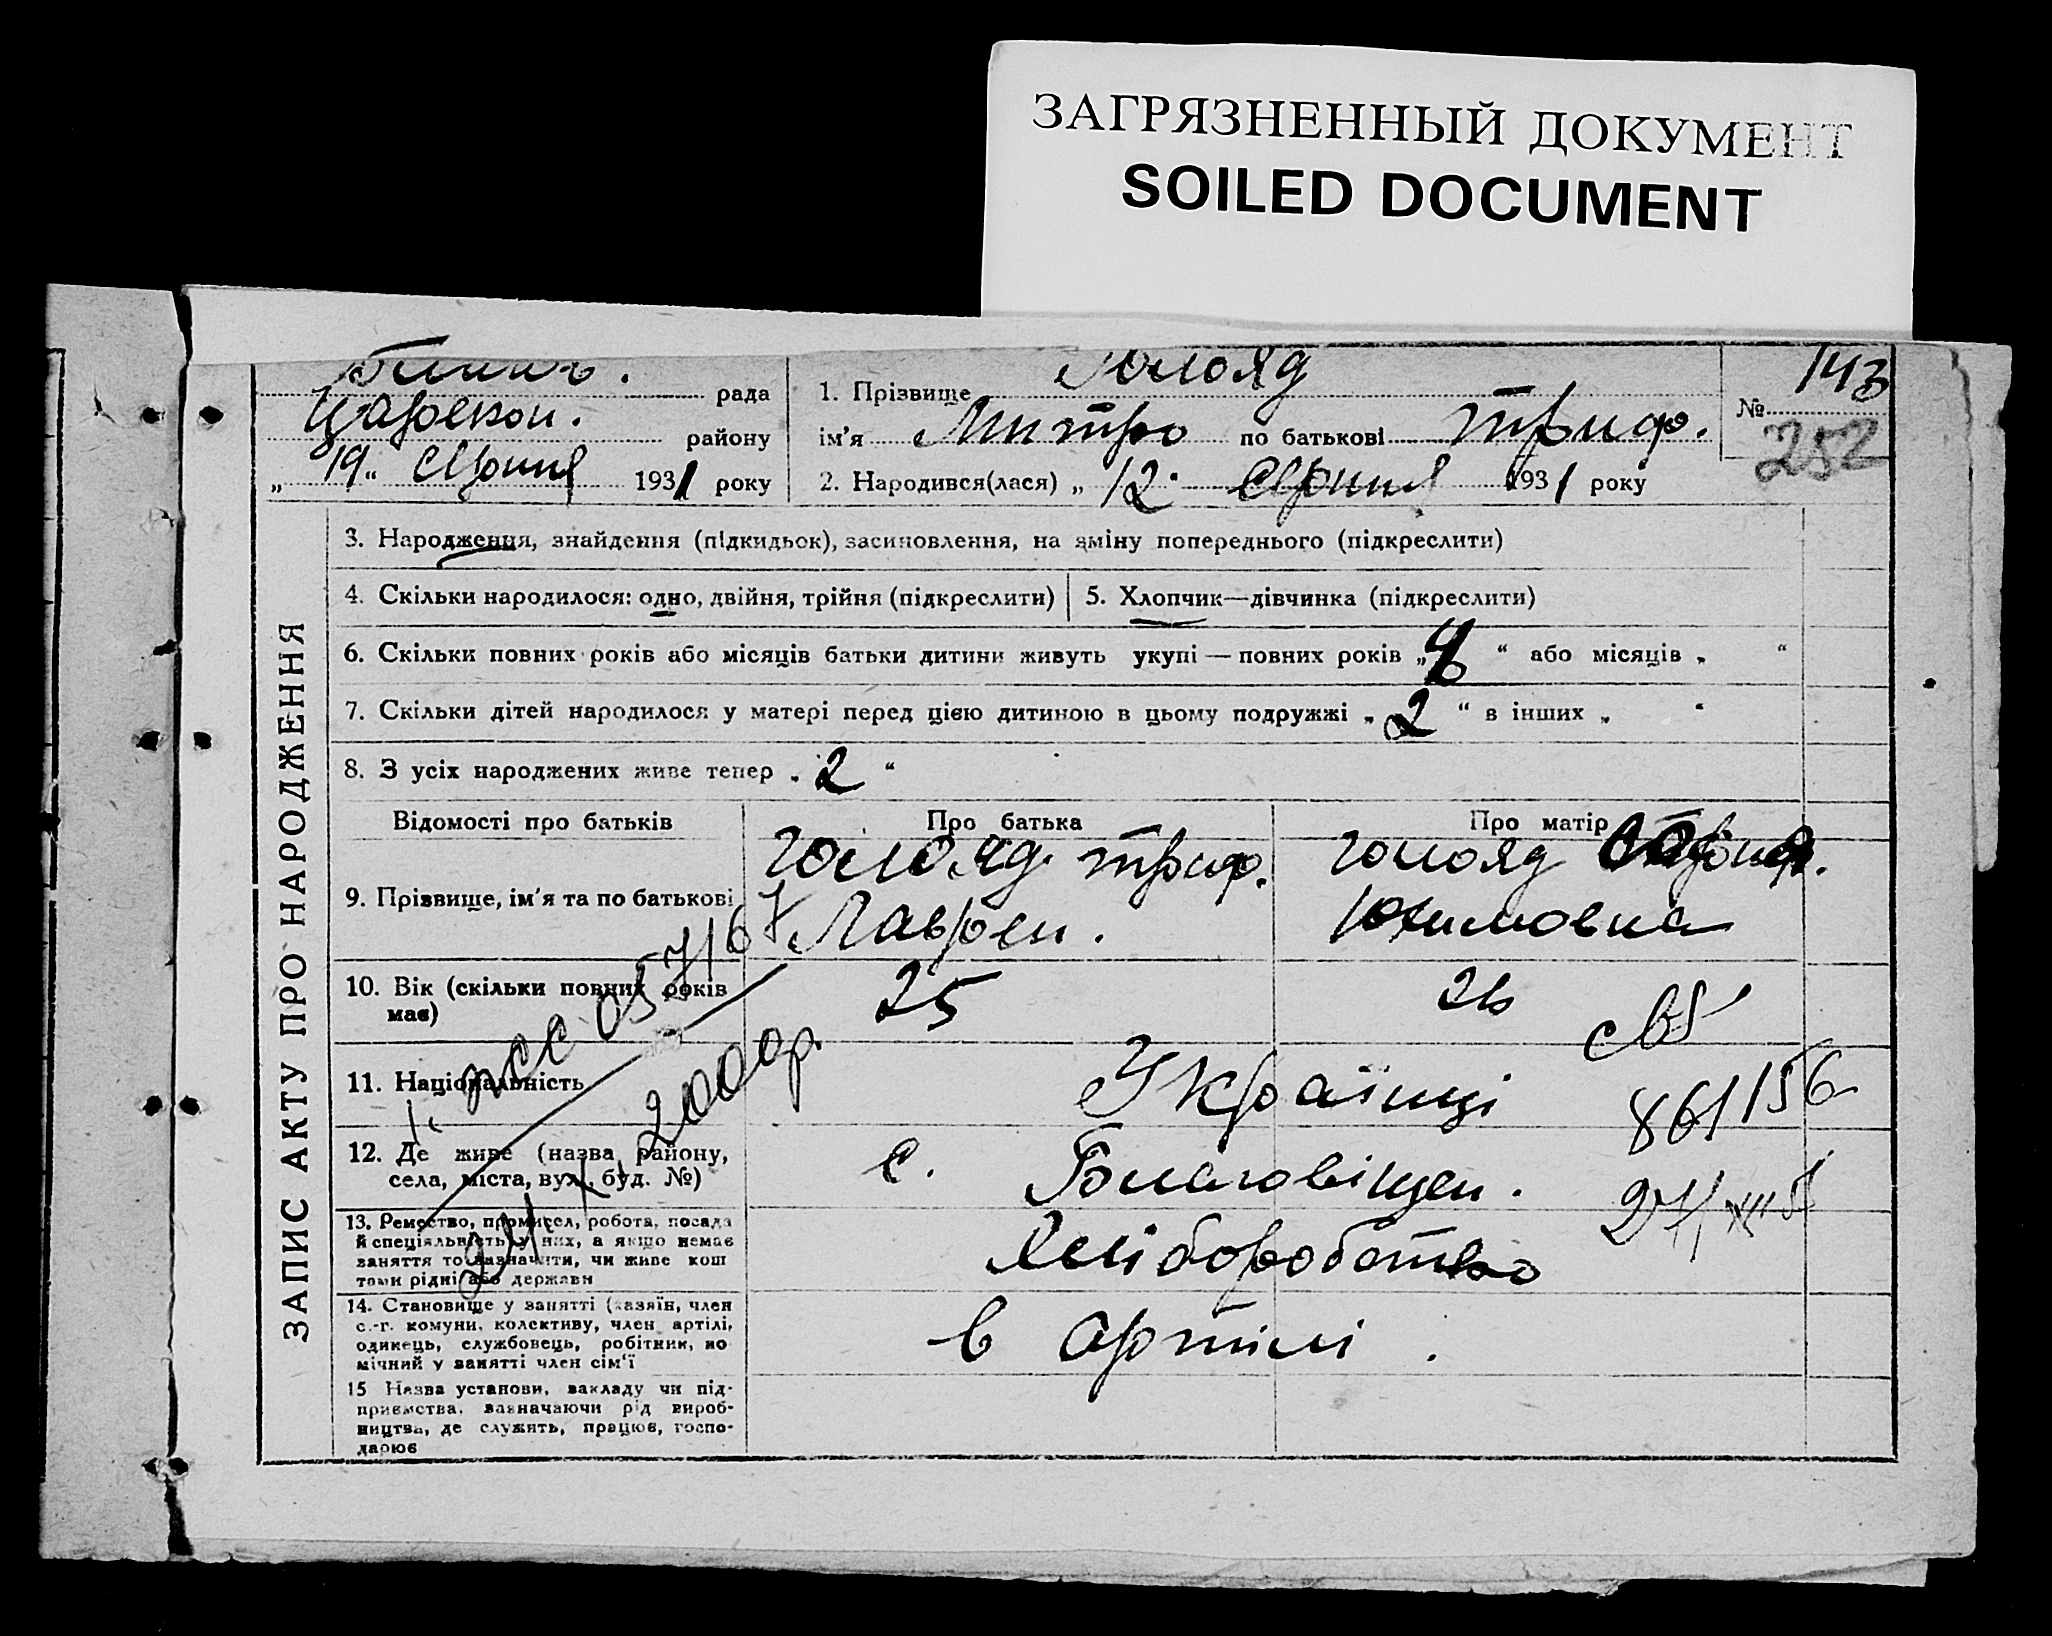 ЗАГРЯЗНЕННЫЙ ДОКУМЕНТ
SOILED DOCUMENT
рада
Царекон. району
„19“ Серпня 1931 року
1. Прізвище Голояд
ім’я Митро по батькові Триф.
2. Народився(лася) „12“ Серпня 1931 року
№ 143
252
ЗАПИС АКТУ ПРО НАРОДЖЕННЯ
3. Народження, знайдення (підкидьок), засиновлення, на зміну попереднього (підкреслити)
4. Скільки народилося: одно, двійня, трійня (підкреслити)
5. Хлопчик—дівчинка (підкреслити)
6. Скільки повних років або місяців батьки дитини живуть укупі — повних років „ “ або місяців „ “
7. Скільки дітей народилося у матері перед цією дитиною в цьому подружжі „2“ в інших „ “
8. З усіх народжених живе тепер „2“
Відомості про батьків
Про батька
Про матір
9. Прізвище, ім’я та по батькові
Голояд Триф.
Лаврен.
Голояд
Юхимовна
10. Вік (скільки повних років
має)
25
26
11. Національність
Українці
12. Де живе (назва району,
села, міста, вул., буд. №)
с. Благовіщен.
13. Ремество, промисел, робота, посада
й спеціяльність у них, а якщо немає
заняття то зазначити, чи живе кош
тами рідні або держави
Хліборобство
14. Становище у занятті (хазяїн, член
с.-г. комуни, колективу, член артілі,
одинець, службовець, робітник, по
мічний у занятті член сім’ї
в артілі.
15 Назва установи, закладу чи під-
приємства, зазначаючи рід вироб-
ництва, де служить, працює, госпо-
дарює
2000р.